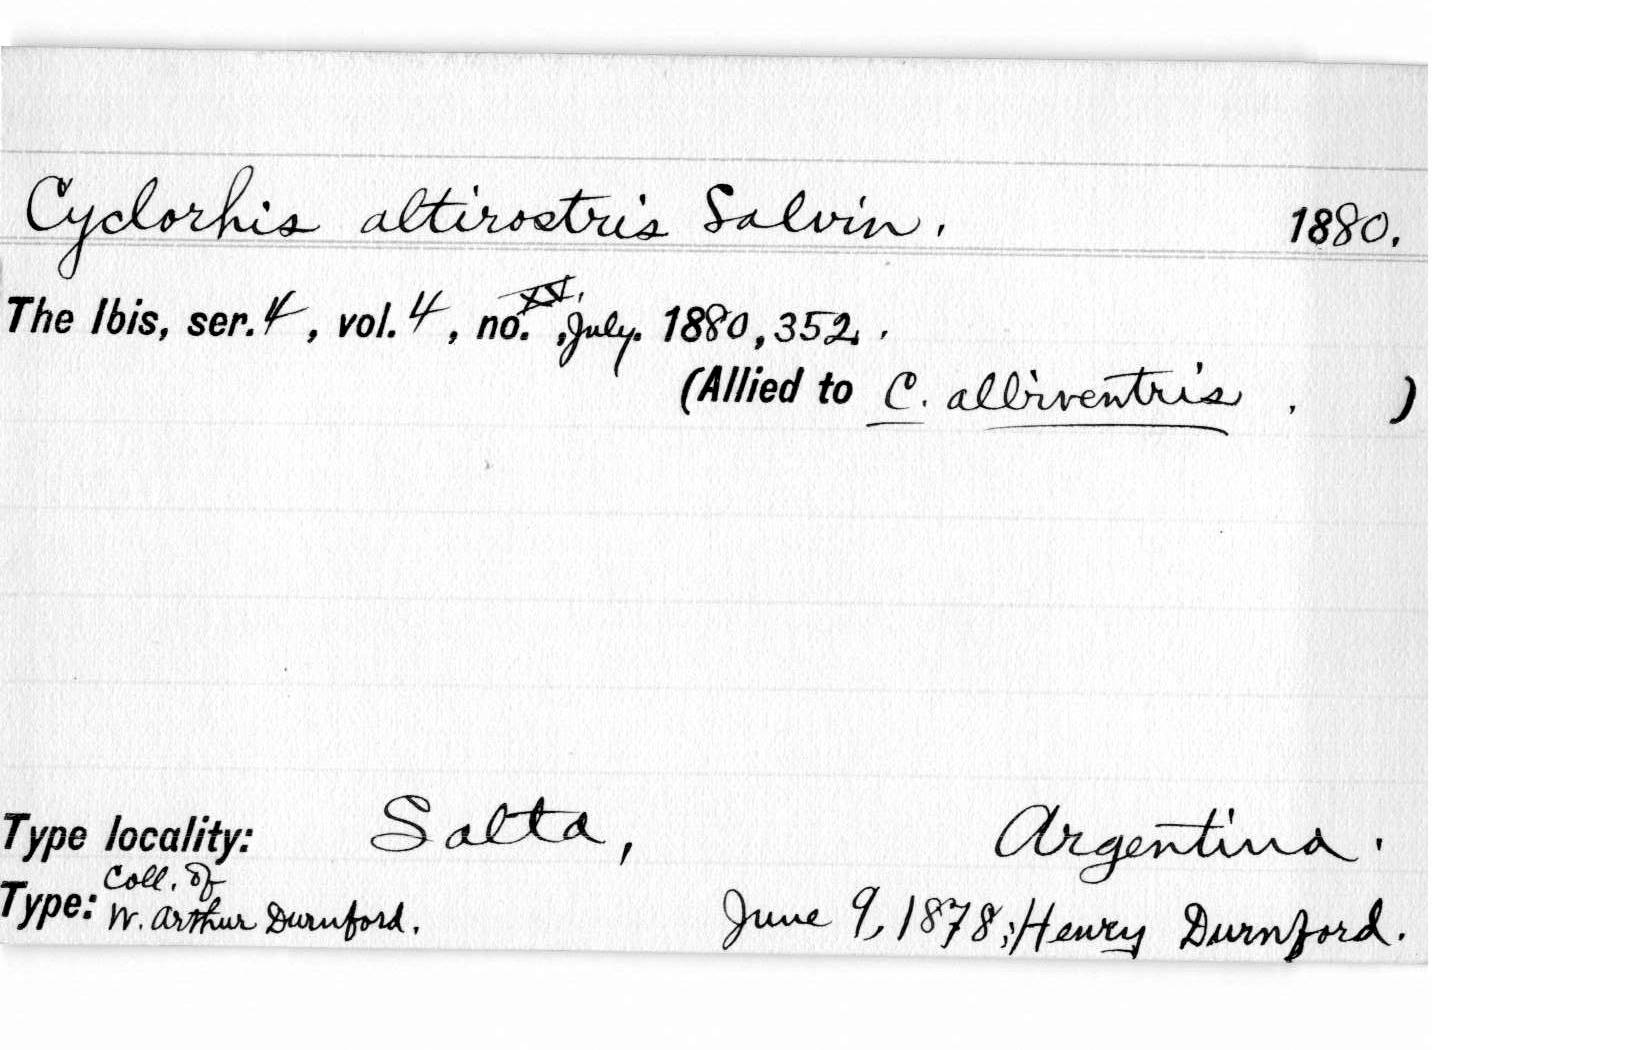 Cyclorhis altirostris Salvin. 1880.
The Ibis, ser. 4, vol. 4, no. XV, July. 1880, 352.
(Allied to C. albiventris. )
Type locality: Salta, Argentina.
Type: Coll. of W. Arthur Durnford. June 9, 1878; Henry Durnford.